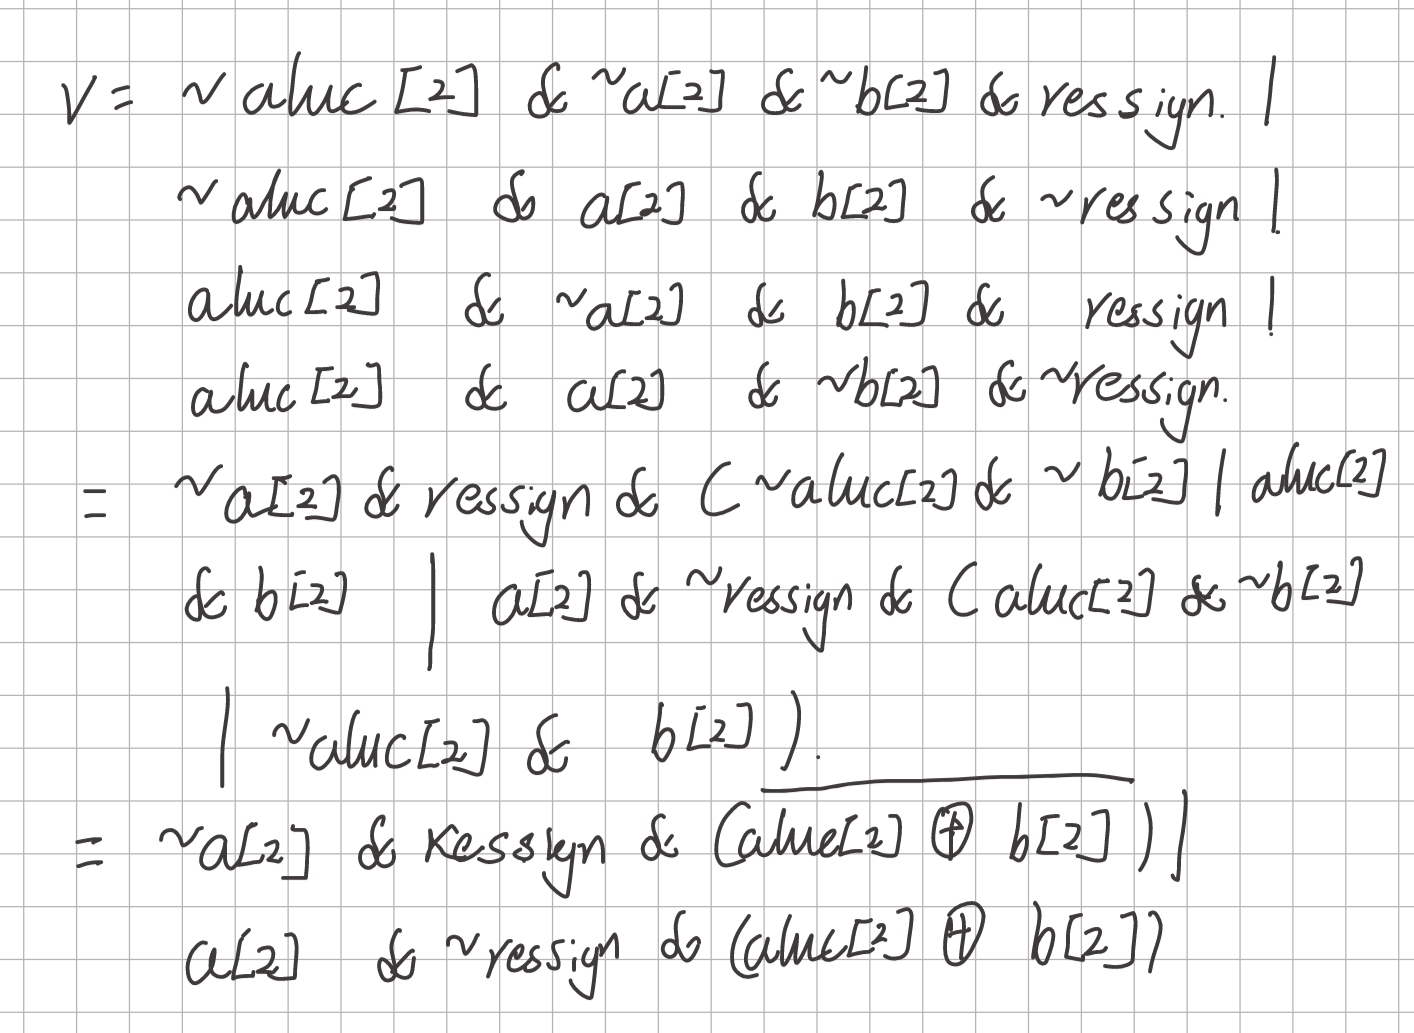 V = ~aluc[2] & ~a[2] & ~b[2] & ressign. |
~aluc[2] & a[2] & b[2] & ~ressign |
aluc[2] & ~a[2] & b[2] & ressign |
aluc[2] & a[2] & ~b[2] & ~ressign.
= ~a[2] & ressign & ( ~aluc[2] & ~b[2] | aluc[2]
& b[2] | a[2] & ~ressign & ( aluc[2] & ~b[2]
| ~aluc[2] & b[2] ).
= ~a[2] & ressign & (\overline{aluc[2] ⊕ b[2]}) |
a[2] & ~ressign & (aluc[2] ⊕ b[2])